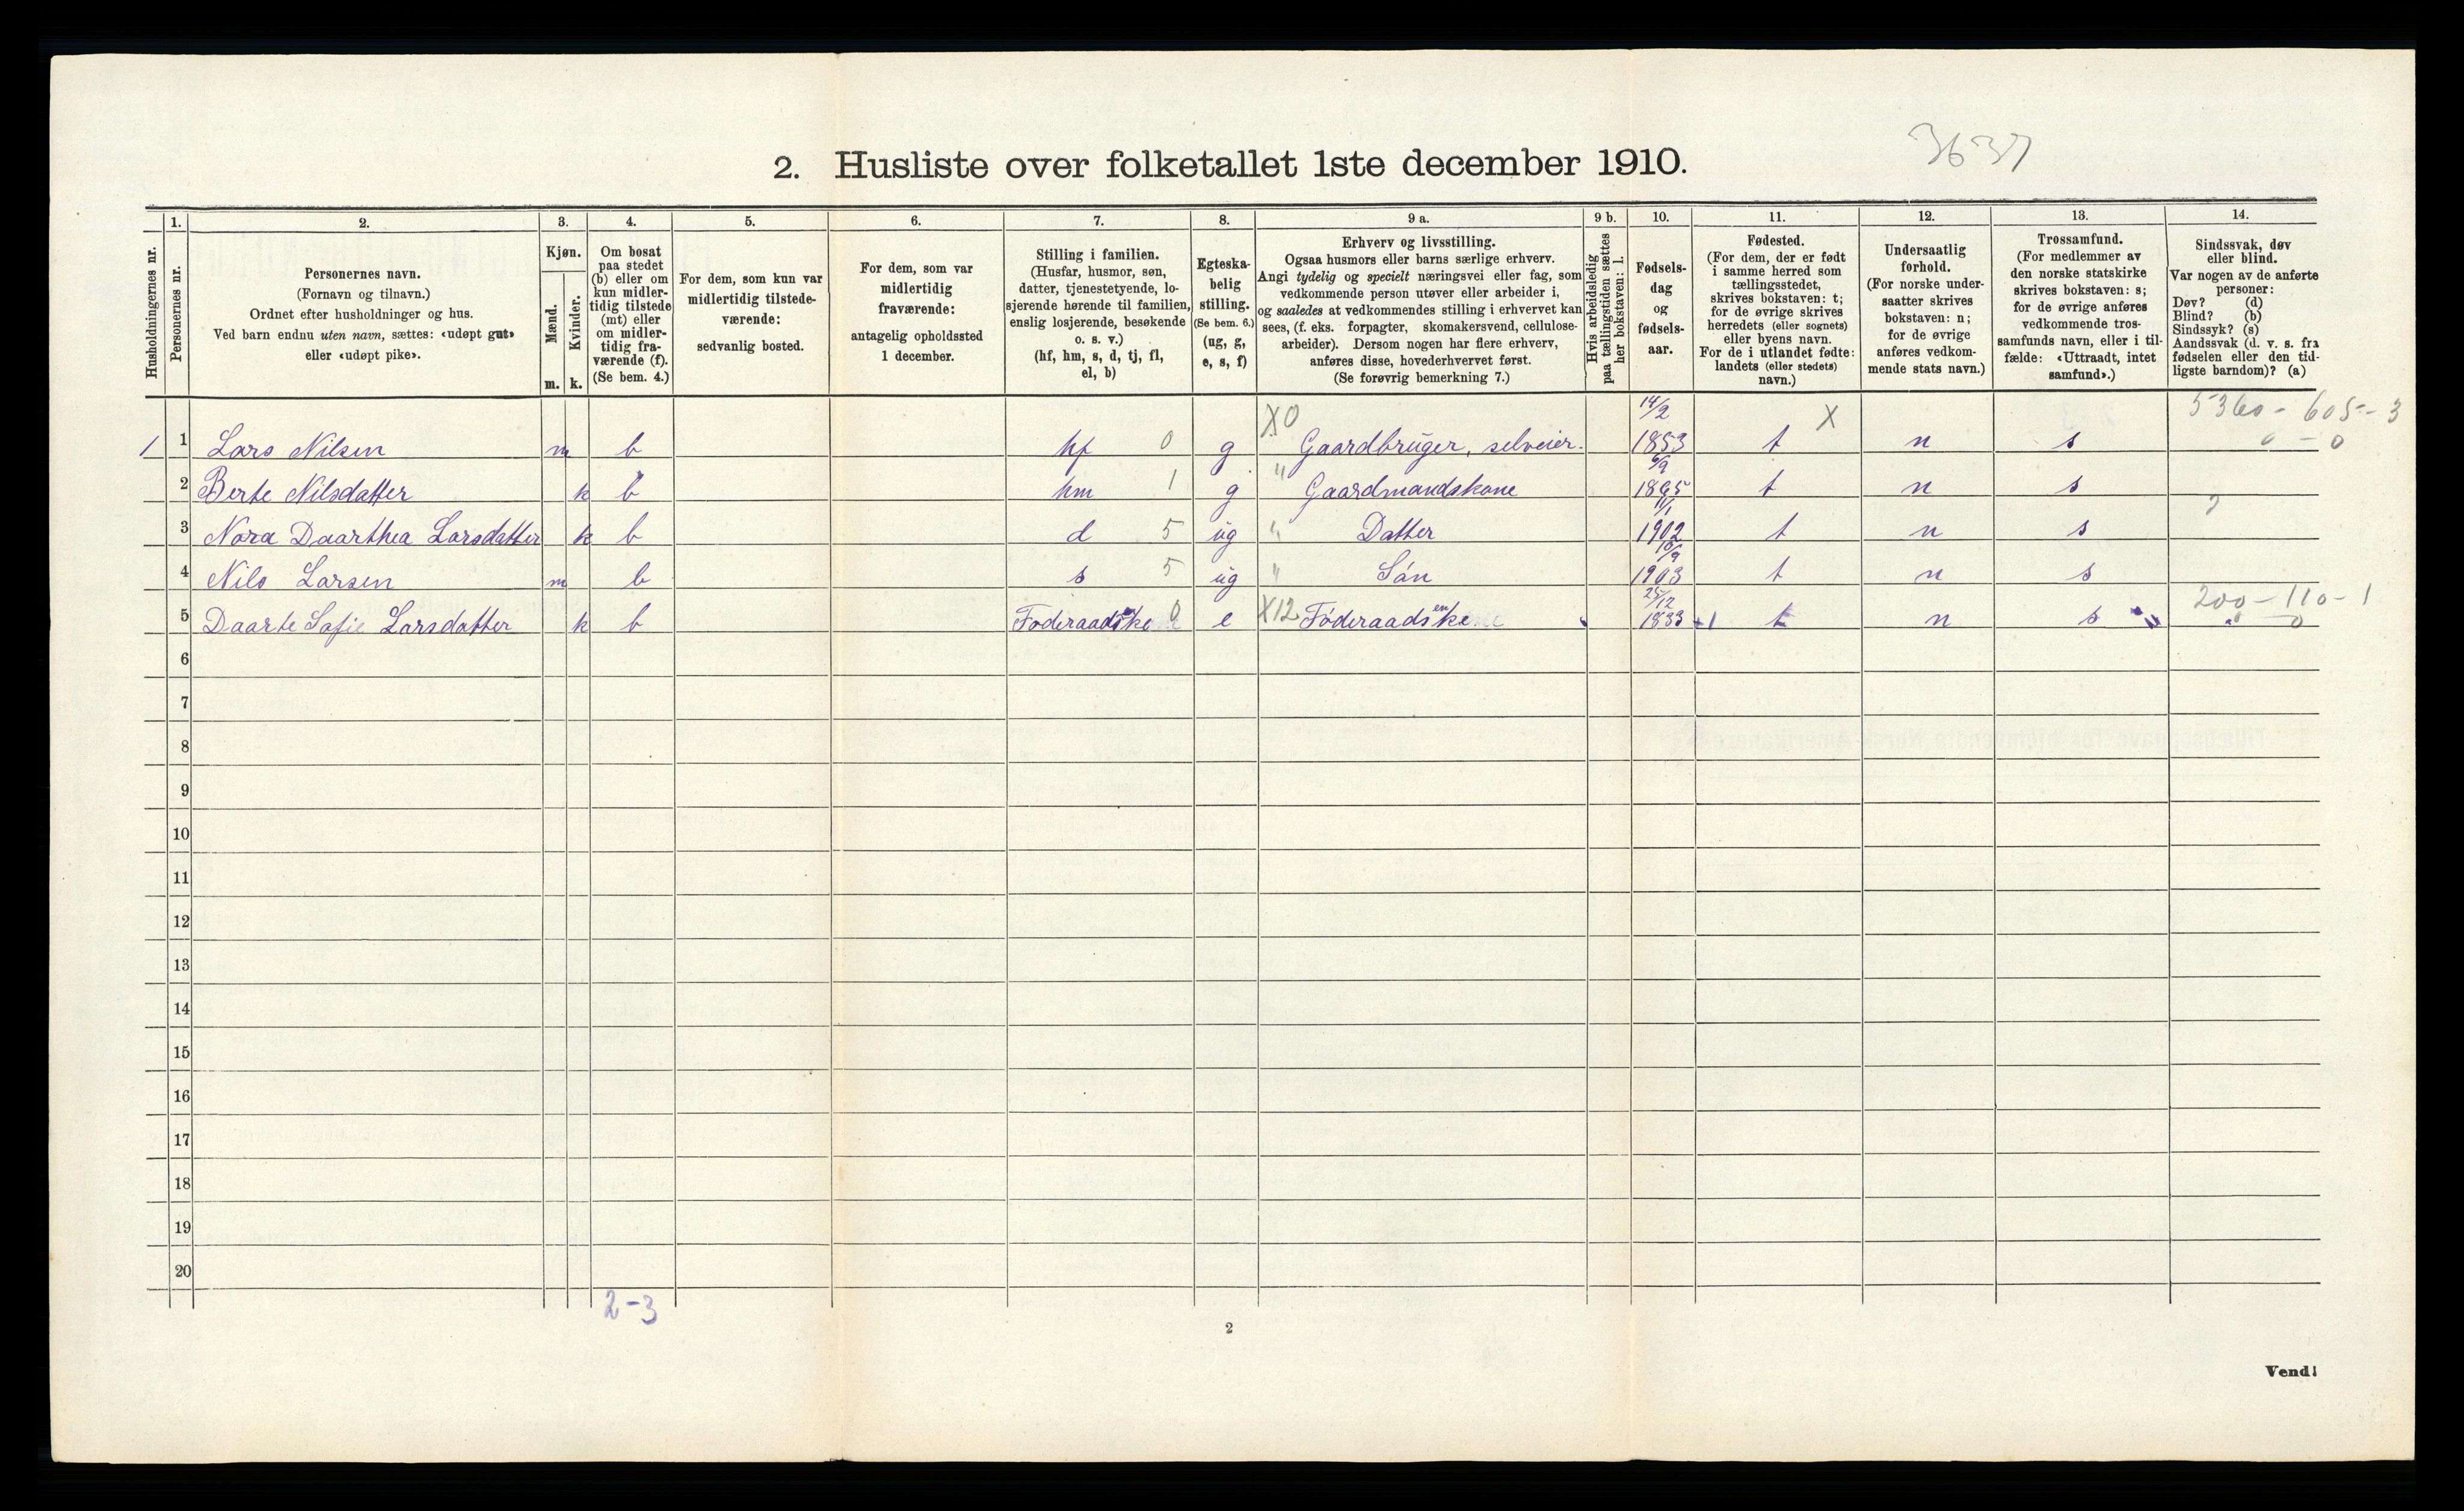 3637
2. Husliste over folketallet 1ste december 1910.
Husholdningernes nr.
1.
Personernes nr.
2.
Personernes navn.
(Fornavn og tilnavn.)
Ordnet efter husholdninger og hus.
Ved barn endnu uten navn, sættes: «udøpt gut»
eller «udøpt pike».
3.
Kjøn.
Mænd.
Kvinder.
m. k.
4.
Om bosat
paa stedet
(b) eller om
kun midler-
tidig tilstede
(mt) eller
om midler-
tidig fra-
værende (f).
(Se bem. 4.)
5.
For dem, som kun var
midlertidig tilstede-
værende:
sedvanlig bosted.
6.
For dem, som var
midlertidig
fraværende:
antagelig opholdssted
1 december.
7.
Stilling i familien.
(Husfar, husmor, søn,
datter, tjenestetyende, lo-
sjerende hørende til familien,
enslig losjerende, besøkende
o. s. v.)
(hf, hm, s, d, tj, fl,
el, b)
8.
Egteska-
belig
stilling.
(Se bem. 6.)
(ug, g,
e, s, f)
9 a.
Erhverv og livsstilling.
Ogsaa husmors eller barns særlige erhverv.
Angi tydelig og specielt næringsvei eller fag, som
vedkommende person utøver eller arbeider i,
og saaledes at vedkommendes stilling i erhvervet kan
sees, (f. eks. forpagter, skomakersvend, cellulose-
arbeider). Dersom nogen har flere erhverv,
anføres disse, hovederhvervet først.
(Se forøvrig bemerkning 7.)
9 b.
Hvis arbeidsledig
paa tællingstiden sættes
her bokstaven: l.
10.
Fødsels-
dag
og
fødsels-
aar.
11.
Fødested.
(For dem, der er født
i samme herred som
tællingsstedet,
skrives bokstaven: t;
for de øvrige skrives
herredets (eller sognets)
eller byens navn.
For de i utlandet fødte:
landets (eller stedets)
navn.)
12.
Undersaatlig
forhold.
(For norske under-
saatter skrives
bokstaven: n;
for de øvrige
anføres vedkom-
mende stats navn.)
13.
Trossamfund.
(For medlemmer av
den norske statskirke
skrives bokstaven: s;
for de øvrige anføres
vedkommende tros-
samfunds navn, eller i til-
fælde: «Uttraadt, intet
samfund».)
14.
Sindssvak, døv
eller blind.
Var nogen av de anførte
personer:
Døv? (d)
Blind? (b)
Sindssyk? (s)
Aandssvak (d. v. s. fra
fødselen eller den tid-
ligste barndom)? (a)
X0 14/2 X 5360 - 605 - 3
1 1 Lars Nilsen m b hf 0 g Gaardbruger, selveier. 1853 t n s 0 - 0
2 Berte Nilsdatter k b hm 1 g " Gaardmandskone 6/9 1865 t n s
3 Nora Daarthea Larsdatter k b d 5 ug " Datter 11/1 1902 t n s
4 Nils Larsen m b s 5 ug " Sön 10/9 1903 t n s
5 Daarte Sofie Larsdatter k b Föderaadsenke 0 e X12 Föderaadsenke 25/12 1833 +1 t n s 200 - 110 - 1
0 - 0
6
7
8
9
10
11
12
13
14
15
16
17
18
19
20
2 - 3
2
Vend!